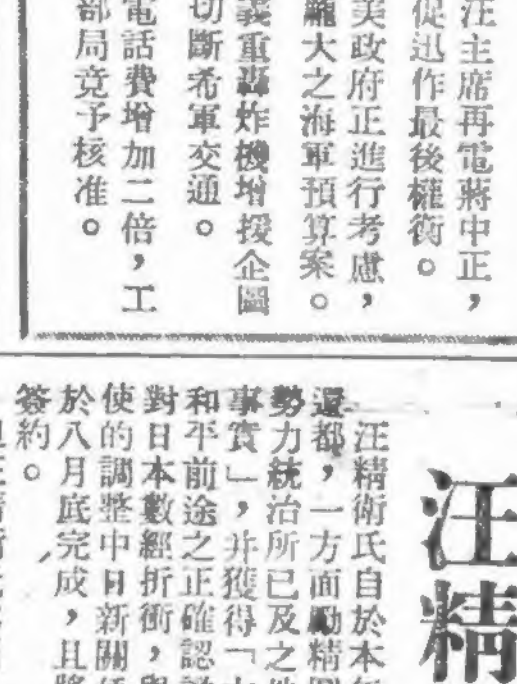 汪主席再電蔣中正，
促迅作最後權衡。
美政府正進行考慮，
龐大之海軍預算案。
義重轟炸機增援企圖
切斷希軍交通。
電話費增加二倍，工
部局竟予核准。
汪精
汪精衛氏自於本年
還都，一方面勵精
勢力統治所已及之
事實」，并獲得「
和平前途之正確認
對日本數經折衝，與
使的調整中日新關係
於八月底完成，且將
簽約。